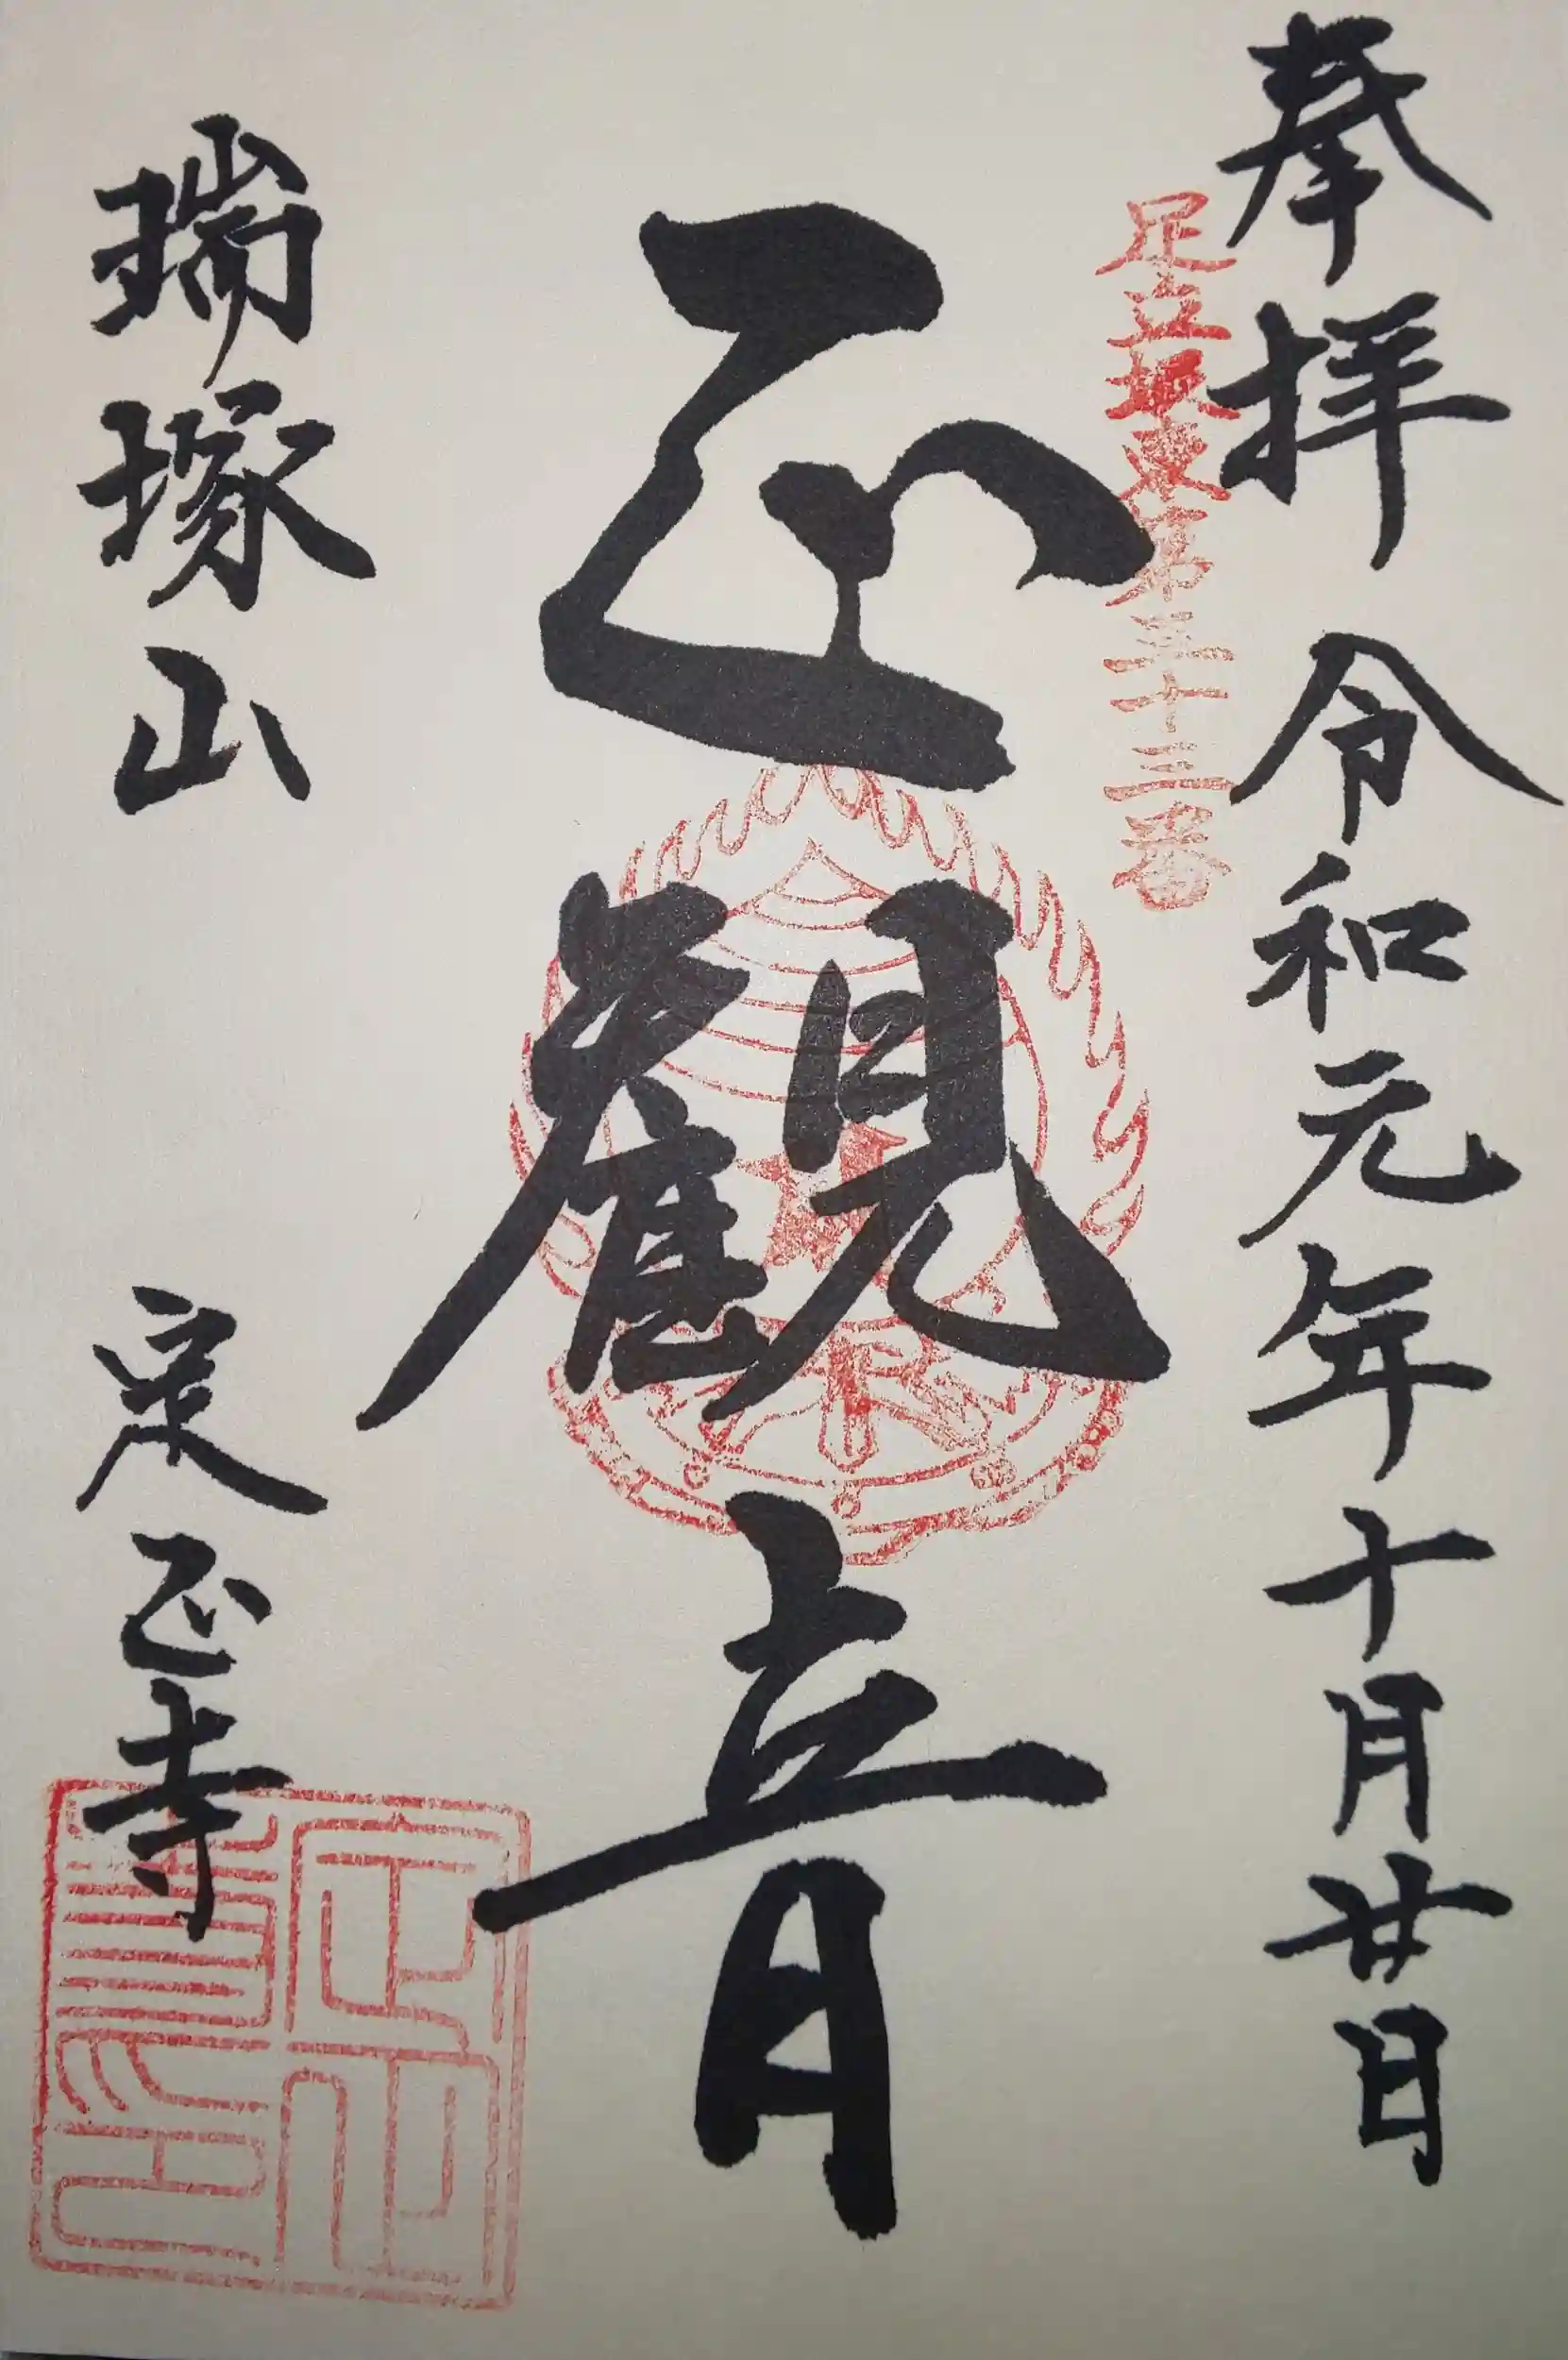 奉拝 令和元年十月廿日
足立坂東第三十三番
正觀音
瑞塚山 定正寺